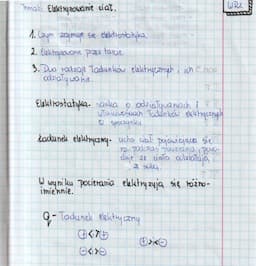 Temat: Elektryzowanie ciał.
1. Czym zajmuje się elektrostatyka.
2. Elektryzowanie przez tarcie.
3. Dwa rodzaje ładunków elektrycznych i ich
oddziaływanie.
Elektrostatyka - nauka o oddziaływaniach i
ładunków elektrycznych
w spoczynku
Ładunek elektryczny - cecha ciał pojawiająca się
ze sobą.
W wyniku pocierania elektryzują się różno-
imiennie.
q - ładunek elektryczny
⊕<->⊕
⊕>-<⊖
⊖<->⊖